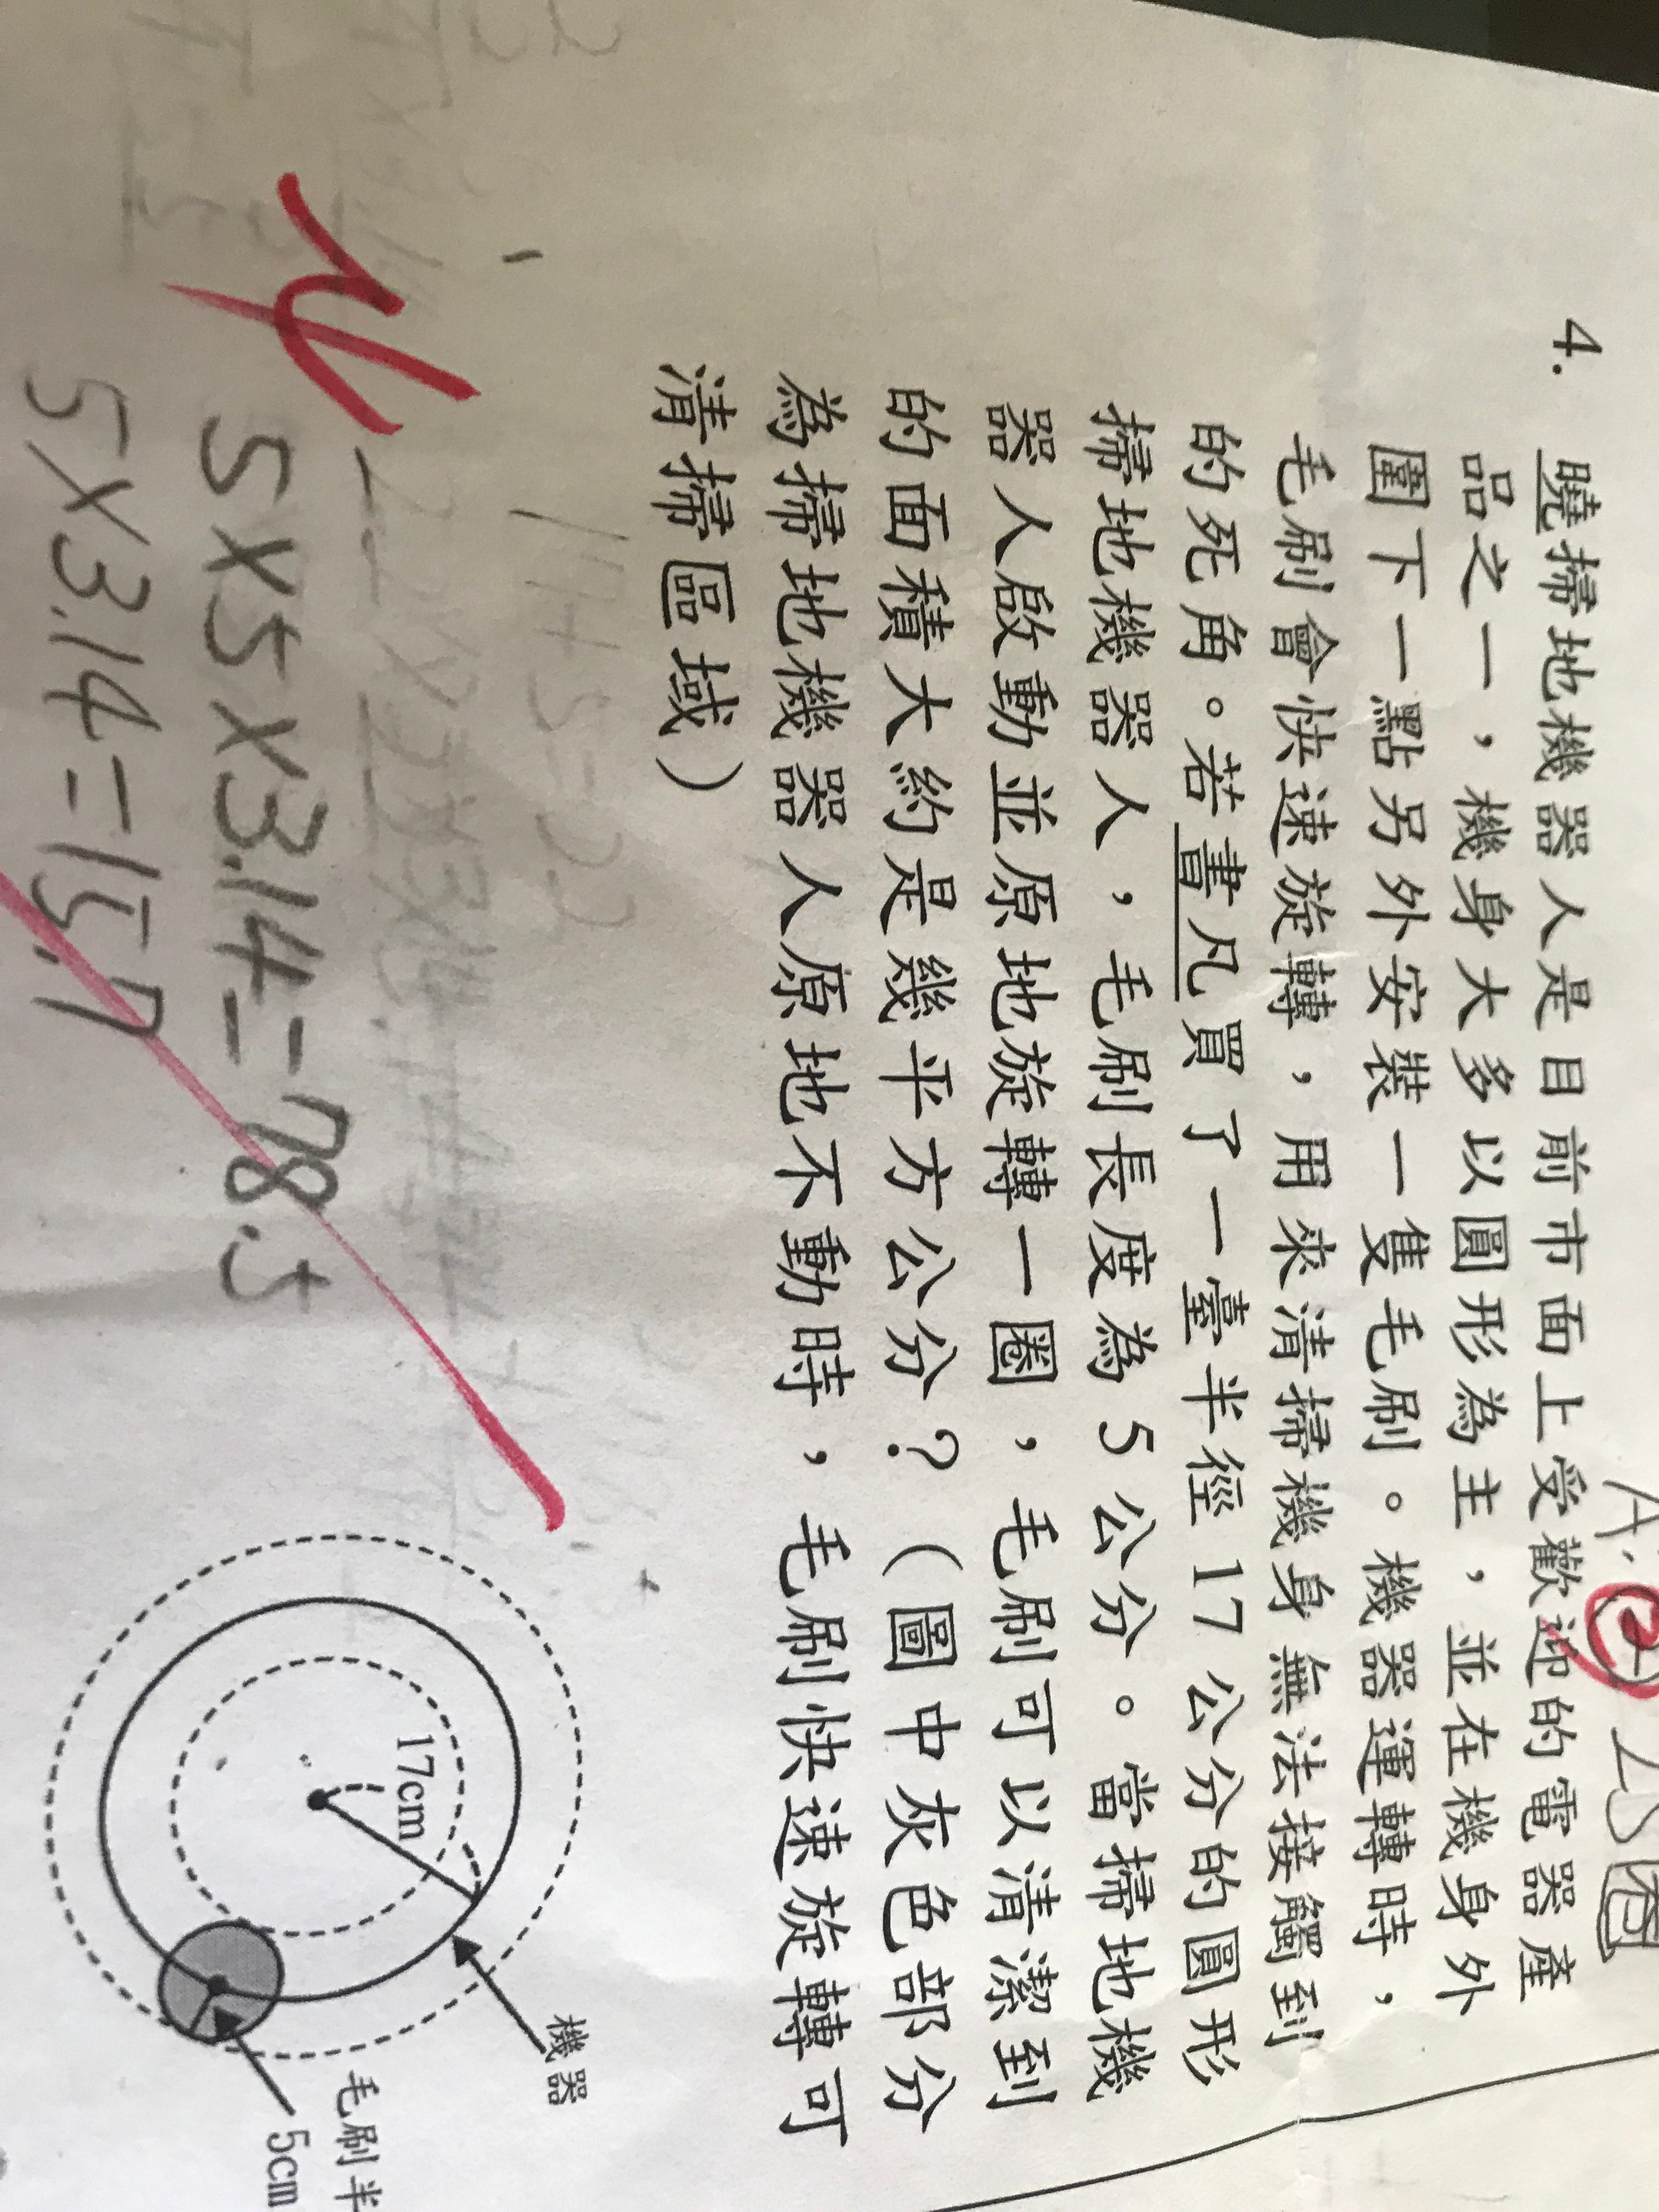 4. 曉掃地機器人是目前市面上受歡迎的電器產
品之一，機身大多以圓形為主，並在機身外
圍下一點另外安裝一隻毛刷。機器運轉時，
毛刷會快速旋轉，用來清掃機身無法接觸到
的死角。若書凡買了一臺半徑 17 公分的圓形
掃地機器人，毛刷長度為 5 公分。當掃地機
器人啟動並原地旋轉一圈，毛刷可以清潔到
的面積大約是幾平方公分？（圖中灰色部分
為掃地機器人原地不動時，毛刷快速旋轉可
清掃區域）
17+5=22
5×5×3.14=78.5
5×3.14=15.7
17cm
機器
毛刷半
5cm